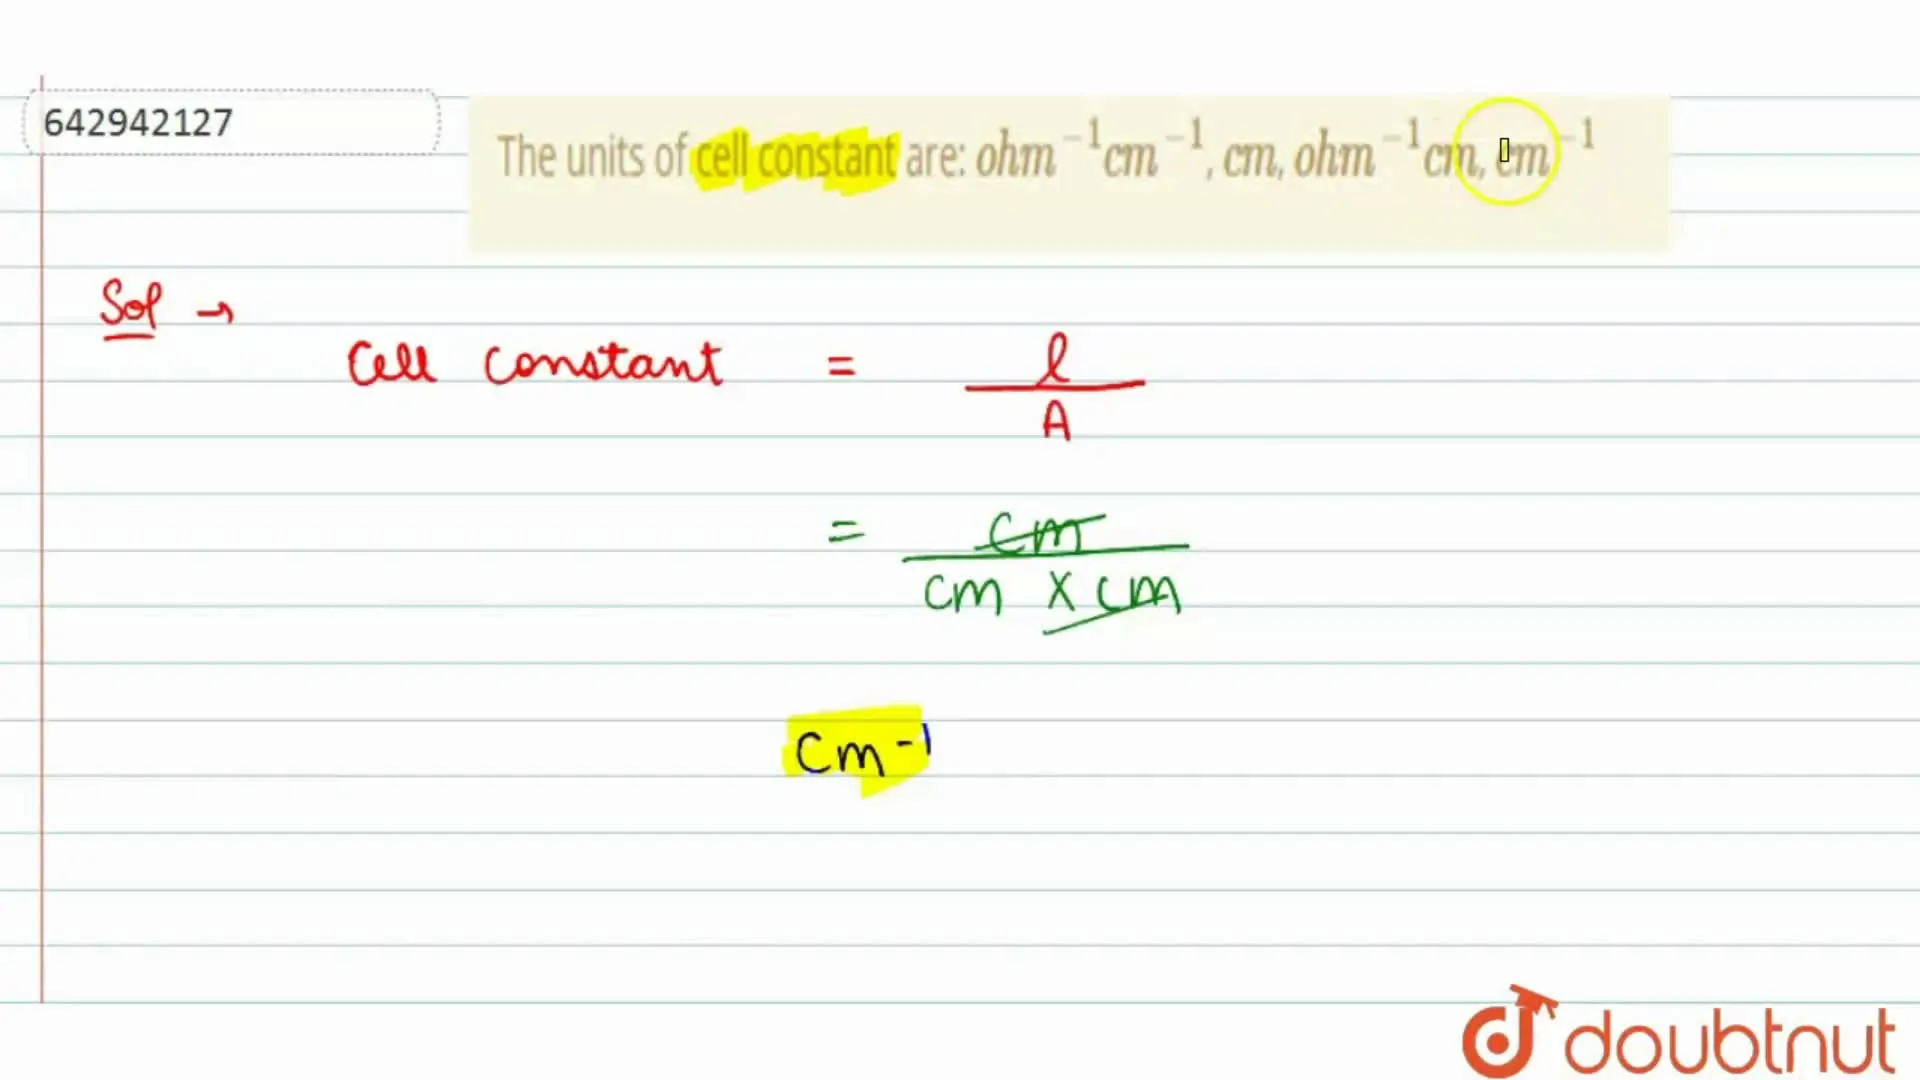 642942127
The units of cell constant are: ohm⁻¹cm⁻¹, cm, ohm⁻¹cm, cm⁻¹
Sol →
Cell constant = l
A
= cm
cm x cm
cm⁻¹
doubtnut